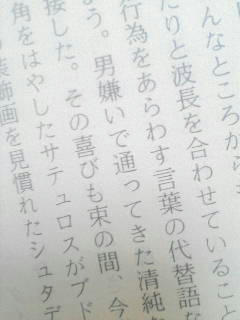 んなところから
たりと波長を合わせていること
行為をあらわす言葉の代替語な
う。男嫌いで通ってきた清純な
接した。その喜びも束の間、今
角をはやしたサテュロスがブド
装飾画を見慣れたシュタデ